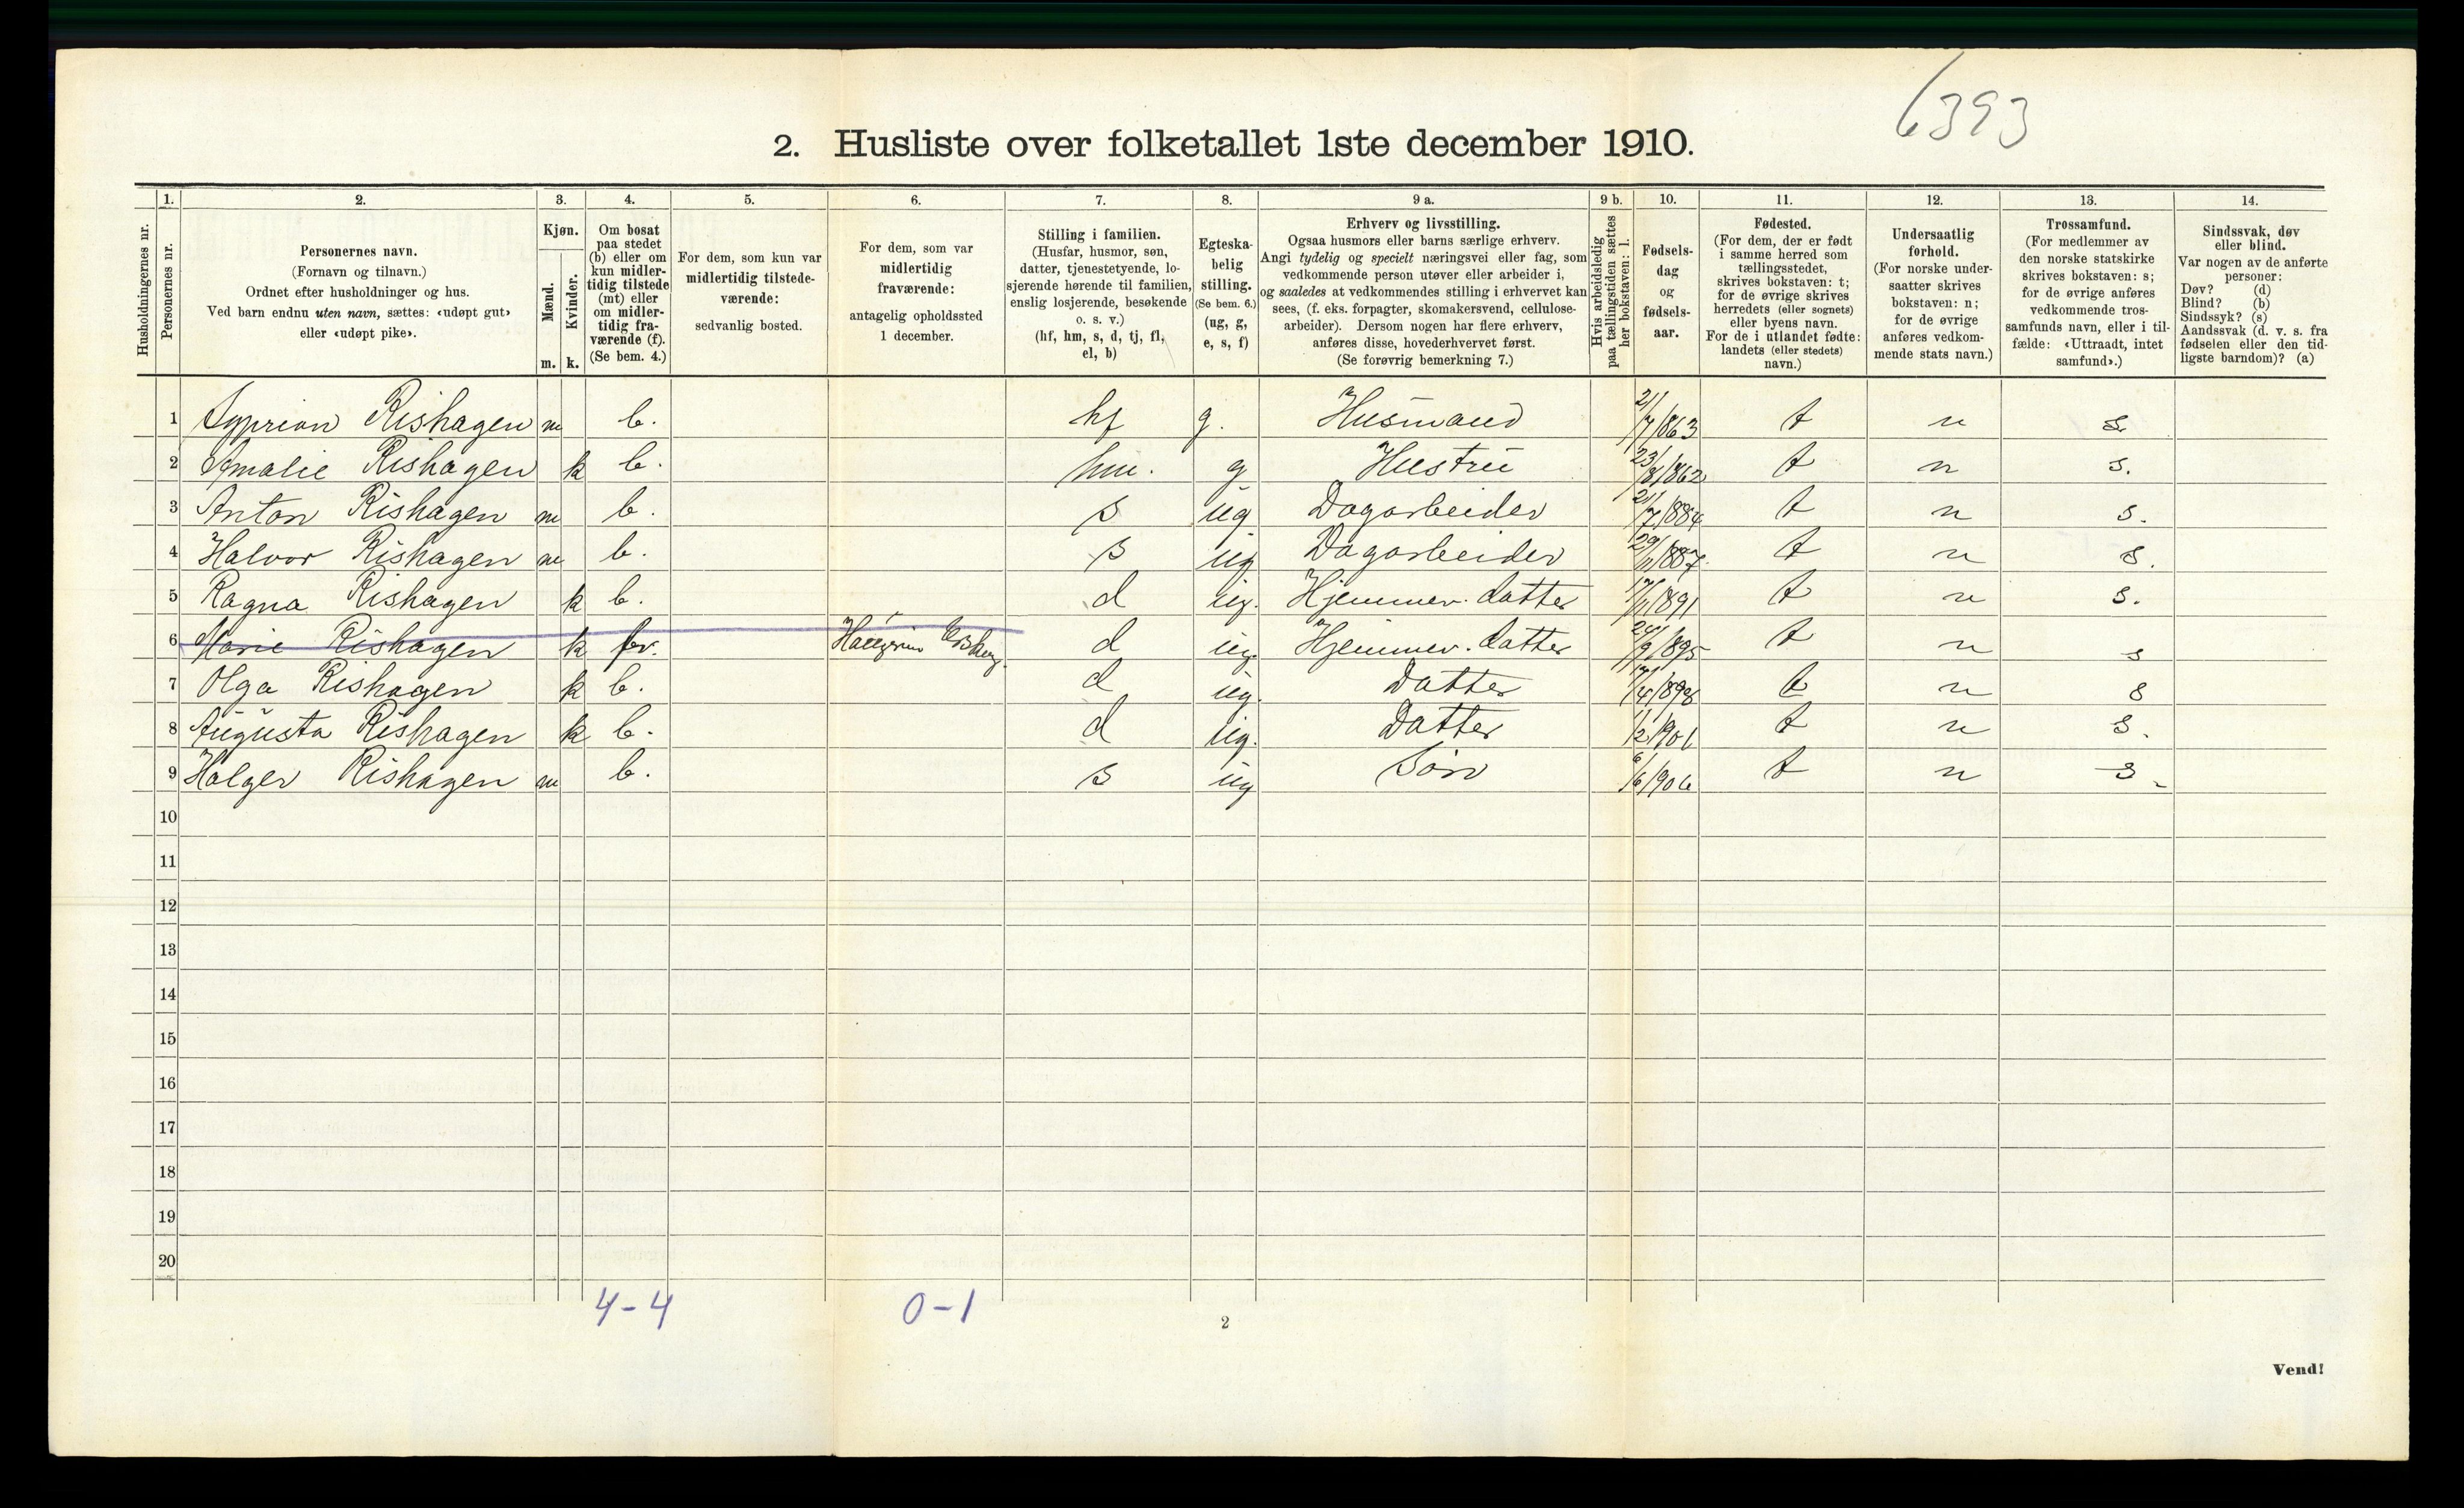 6393
2. Husliste over folketallet 1ste december 1910.
Husholdningernes nr.
1.
Personernes nr.
2.
Personernes navn.
(Fornavn og tilnavn.)
Ordnet efter husholdninger og hus.
Ved barn endnu uten navn, sættes: «udøpt gut»
eller «udøpt pike».
3.
Kjøn.
Mænd.
m.
Kvinder.
k.
4.
Om bosat
paa stedet
(b) eller om
kun midler-
tidig tilstede
(mt) eller
om midler-
tidig fra-
værende (f).
(Se bem. 4.)
5.
For dem, som kun var
midlertidig tilstede-
værende:
sedvanlig bosted.
6.
For dem, som var
midlertidig
fraværende:
antagelig opholdssted
1 december.
7.
Stilling i familien.
(Husfar, husmor, søn,
datter, tjenestetyende, lo-
sjerende hørende til familien,
enslig losjerende, besøkende
o. s. v.)
(hf, hm, s, d, tj, fl,
el, b)
8.
Egteska-
belig
stilling.
(Se bem. 6.)
(ug, g,
e, s, f)
9 a.
Erhverv og livsstilling.
Ogsaa husmors eller barns særlige erhverv.
Angi tydelig og specielt næringsvei eller fag, som
vedkommende person utøver eller arbeider i,
og saaledes at vedkommendes stilling i erhvervet kan
sees, (f. eks. forpagter, skomakersvend, cellulose-
arbeider). Dersom nogen har flere erhverv,
anføres disse, hovederhvervet først.
(Se forøvrig bemerkning 7.)
9 b.
Hvis arbeidsledig
paa tællingstiden sættes
her bokstaven: l.
10.
Fødsels-
dag
og
fødsels-
aar.
11.
Fødested.
(For dem, der er født
i samme herred som
tællingsstedet,
skrives bokstaven: t;
for de øvrige skrives
herredets (eller sognets)
eller byens navn.
For de i utlandet fødte:
landets (eller stedets)
navn.)
12.
Undersaatlig
forhold.
(For norske under-
saatter skrives
bokstaven: n;
for de øvrige
anføres vedkom-
mende stats navn.)
13.
Trossamfund.
(For medlemmer av
den norske statskirke
skrives bokstaven: s;
for de øvrige anføres
vedkommende tros-
samfunds navn, eller i til-
fælde: «Uttraadt, intet
samfund».)
14.
Sindssvak, døv
eller blind.
Var nogen av de anførte
personer:
Døv? (d)
Blind? (b)
Sindssyk? (s)
Aandssvak (d. v. s. fra
fødselen eller den tid-
ligste barndom)? (a)
1 Syprian Rishagen m b. hf g. Husmand 21/7 1863 t n s.
2 Amalie Rishagen k b. hm. g Hustru 23/8 1862 t n s.
3 Anton Rishagen m b. s ug Dagarbeider 21/7 1884 t n s.
4 Halvor Rishagen m b. s ug Dagarbeider 29/11 1887 t n s.
5 Ragna Rishagen k b. d ug. Hjemmev. datter 17/11 1891 t n s.
6 Marie Rishagen k fr. d ug. Hjemmev. datter 24/9 1895 t n s
7 Olga Rishagen k b. d ug. Datter 17/4 1898 t n s
8 Augusta Rishagen k b. d ug. Datter 1/2 1901 t n s.
9 Holger Rishagen m b. s ug Søn 6/6 1906 t n s
10
11
12
13
14
15
16
17
18
19
20
4-4 0-1
2
Vend!